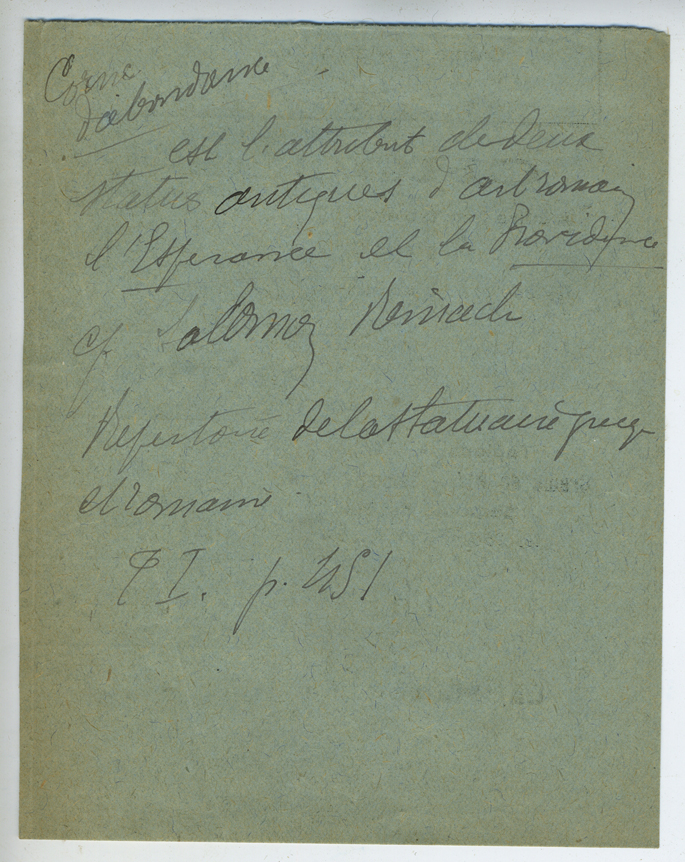 Corne
d'abondance
est l'attribut de deux
statues antiques d'art romain
l'Esperance et la Providence
cf Salomon Reinach
Repertoire de la statuaire grecque
et romaine
T I. p. 451